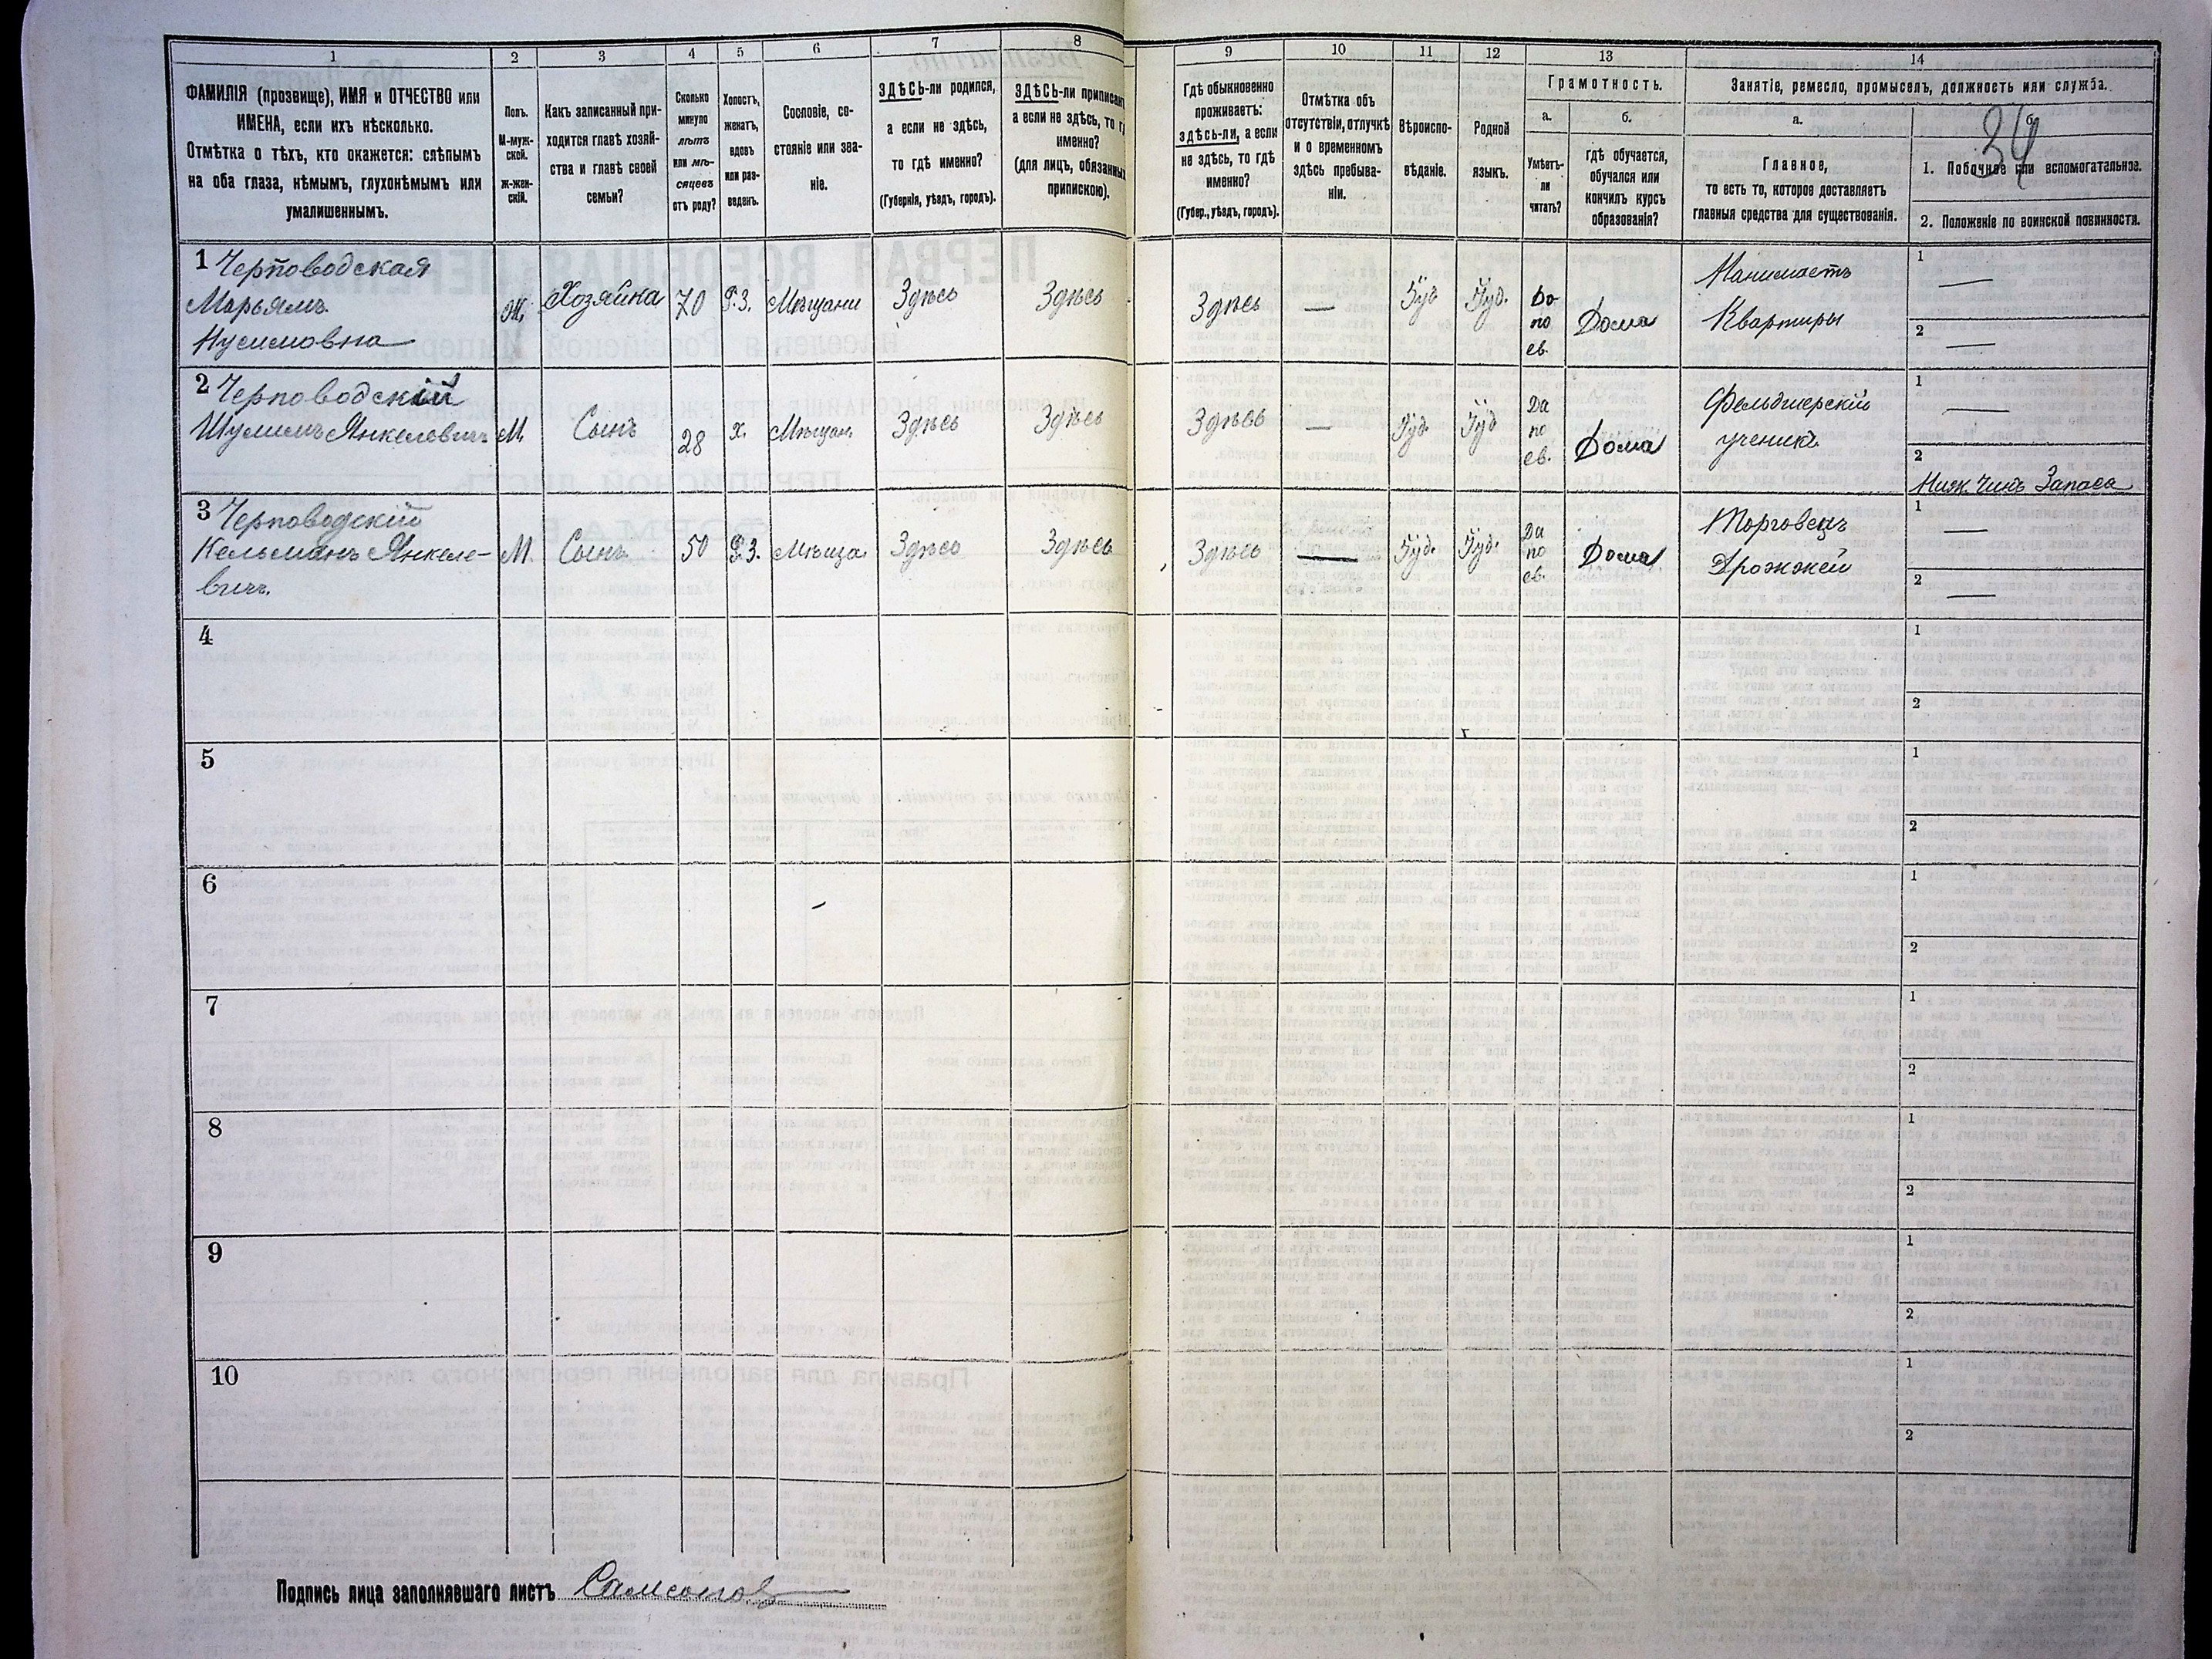 1 2 3 4 5 6 7 8 9 10 11 12 13 14
ФАМИЛІЯ (прозвище), ИМЯ и ОТЧЕСТВО или
ИМЕНА, если ихъ нѣсколько.
Отмѣтка о тѣхъ, кто окажется: слѣпымъ
на оба глаза, нѣмымъ, глухонѣмымъ или
умалишеннымъ.
Полъ.
М-муж-
ской.
Ж-жен-
скій.
Какъ записанный при-
ходится главѣ хозяй-
ства и главѣ своей
семьи?
Сколько
минуло
лѣтъ
или мѣ-
сяцевъ
отъ роду?
Холостъ,
женатъ,
вдовъ
или раз-
веденъ.
Сословіе, со-
стояніе или зва-
ніе.
ЗДѢСЬ-ли родился,
а если не здѣсь,
то гдѣ именно?
(Губернія, уѣздъ, городъ).
ЗДѢСЬ-ли приписанъ
а если не здѣсь, то г
именно?
(для лицъ, обязанных
припискою).
Гдѣ обыкновенно
проживаетъ:
здѣсь-ли, а если
не здѣсь, то гдѣ
именно?
(Губер., уѣздъ, городъ).
Отмѣтка объ
отсутствіи, отлучкѣ
и о временномъ
здѣсь пребыва-
ніи.
Вѣроиспо-
вѣданіе.
Родной
языкъ.
Грамотность.
а.
Умѣетъ-
ли
читать?
б.
гдѣ обучается,
обучался или
кончилъ курсъ
образованія?
Занятіе, ремесло, промыселъ, должность или служба.
а.
Главное,
то есть то, которое доставляетъ
главныя средства для существованія.
б.
34
1. Побочное или вспомогательное.
2. Положеніе по воинской повинности.
1 Черповодская
Марьямъ
Нусимовна
Ж. Хозяйка 70 Мѣщани Здѣсь Здѣсь Здѣсь — Іуд Іуд.
Да
по
ев.
Дома
Нанимаетъ
Квартиры
1 —
2 —
2 Черповодскій
Шулимъ Янкелевичъ
М. Сынъ 28 х. Мѣщан. Здѣсь Здѣсь Здѣсь — Іуд. Іуд
Да
по
ев.
Дома
Фельдшерскій
ученикъ
1 —
2
Ниж. Чинъ Запаса
3 Черповодскій
Кельманъ Янкеле-
вичъ.
М. Сынъ 50 Мѣща. Здѣсь Здѣсь Здѣсь — Іуд. Іуд.
Да
по
ев.
Дома
Торговецъ
Дрожжей
1 —
2 —
4
1
2
5
1
2
6
1
2
7
1
2
8
1
2
9
1
2
10
1
2
Подпись лица заполнявшаго листъ Самсонов